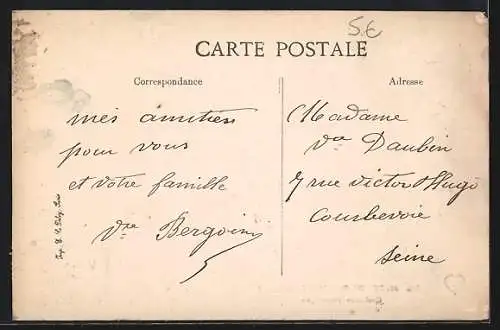 5€
CARTE POSTALE
Correspondance
mes amitiés
pour vous
et votre famille
Vve Bergoin
Adresse
Madame
Vve Daubin
7 rue Victor Hugo
Courbevoie
Seine